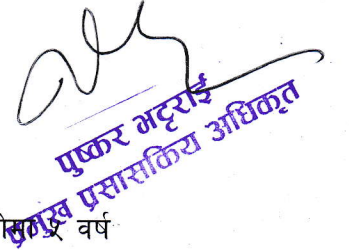 पुष्कर भट्टराई
प्रमुख प्रसासकिय अधिकृत
वर्ष